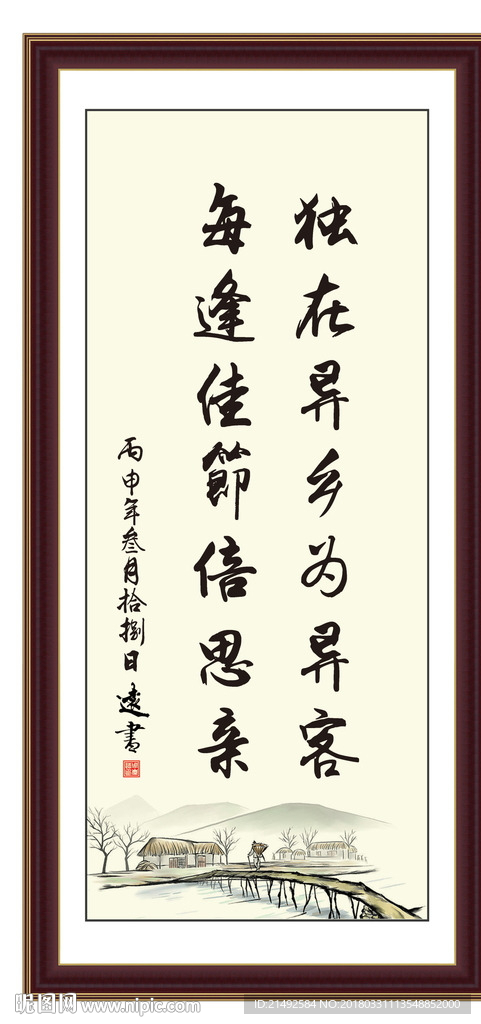 独在异乡为异客
每逢佳節倍思亲
丙申年叁月拾捌日 远書
昵图网 www.nipic.com
ID:21492584 NO:20180331113548852000